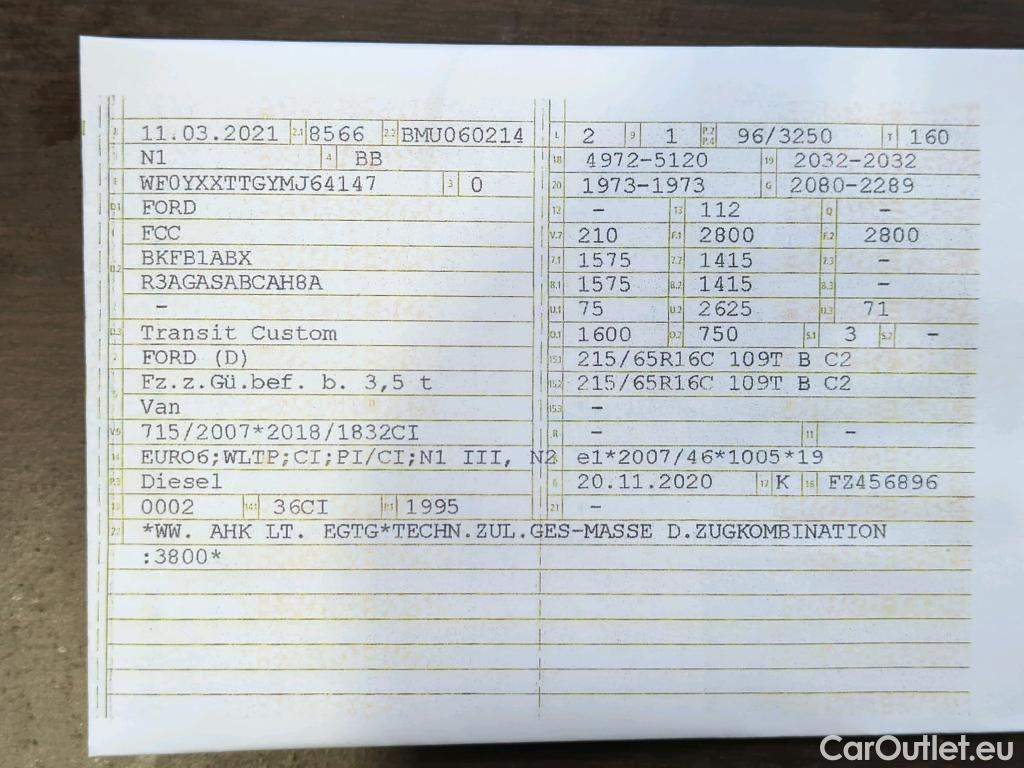 B 11.03.2021 2.1 8566 2.2 BMU060214
J N1 4 BB
E WF0YXXTTGYMJ64147 3 0
D.1 FORD
FCC
D.2 BKFB1ABX
R3AGASABCAH8A
-
D.3 Transit Custom
2 FORD (D)
5 Fz.z.Gü.bef. b. 3,5 t
Van
V.9 715/2007*2018/1832CI
14 EURO6;WLTP;CI;PI/CI;N1 III, N2
P.3 Diesel
10 0002 14.1 36CI P.1 1995
22 *WW. AHK LT. EGTG*TECHN.ZUL.GES-MASSE D.ZUGKOMBINATION
:3800*
L 2 9 1 P.2 P.4 96/3250 T 160
18 4972-5120 19 2032-2032
20 1973-1973 G 2080-2289
12 - 13 112 Q -
V.7 210 F.1 2800 F.2 2800
7.1 1575 7.2 1415 7.3 -
8.1 1575 8.2 1415 8.3 -
U.1 75 U.2 2625 U.3 71
O.1 1600 O.2 750 S.1 3 S.2 -
15.1 215/65R16C 109T B C2
15.2 215/65R16C 109T B C2
15.3 -
R - 11 -
K e1*2007/46*1005*19
6 20.11.2020 17 K 16 FZ456896
21 -
CarOutlet.eu